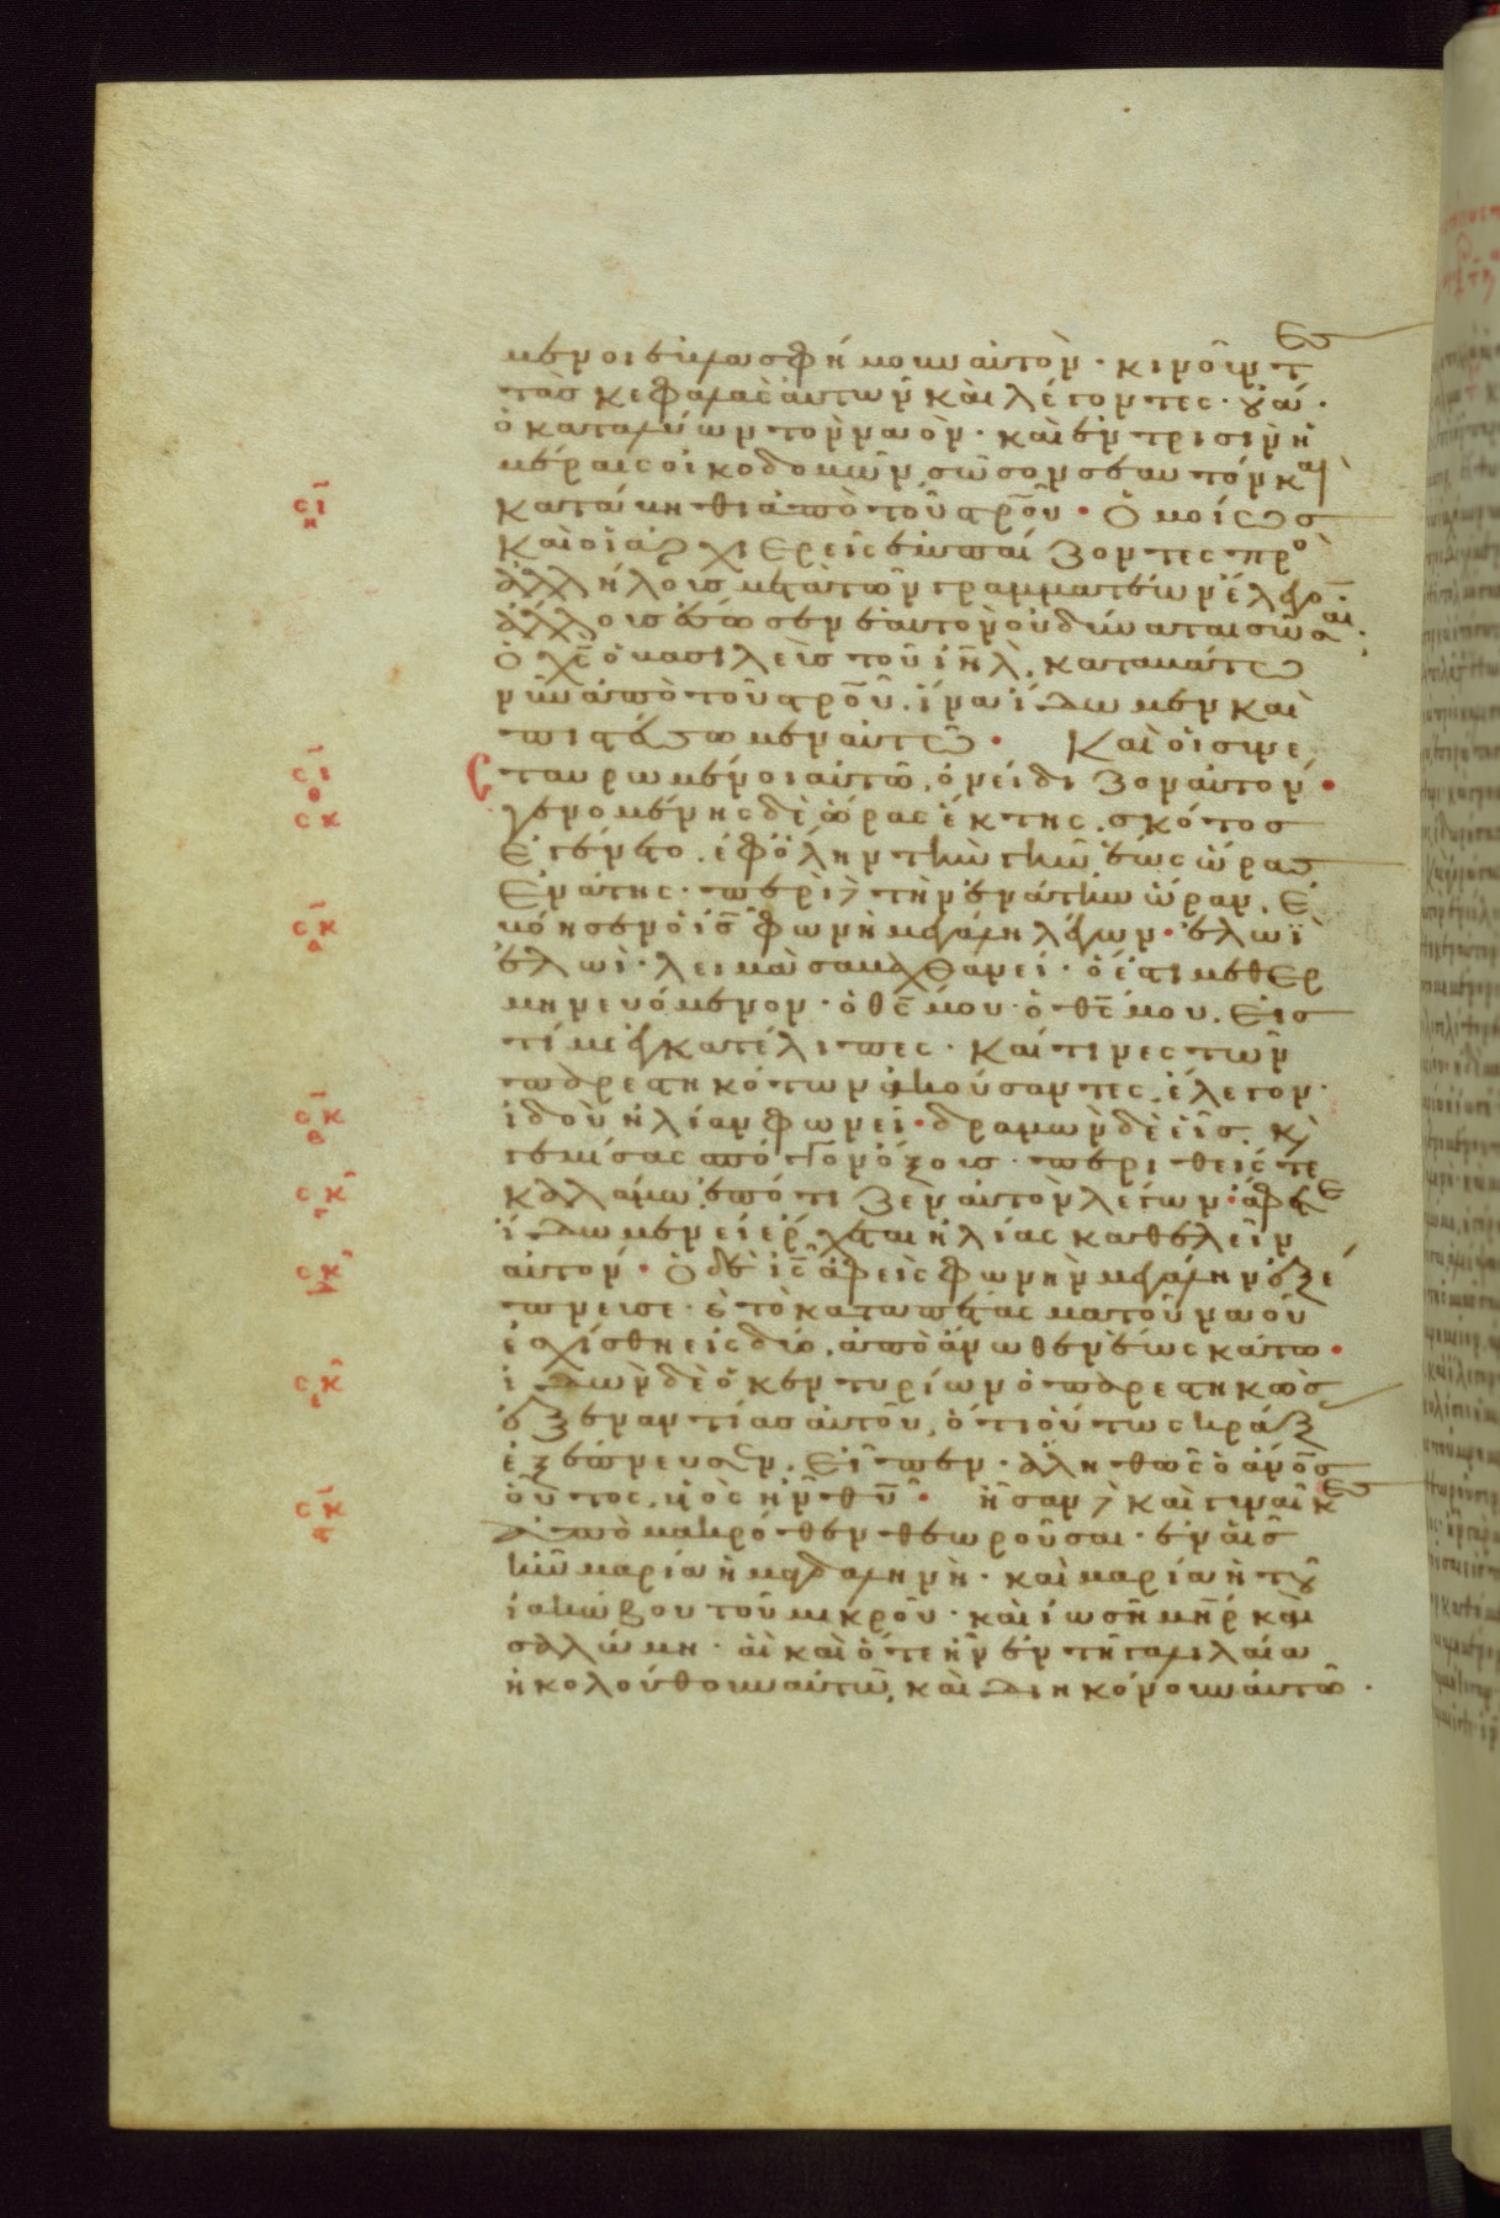 μενοι ἐβλασφήμουν αὐτὸν· κινοῦντες
τὰς κεφαλὰς αὐτῶν καὶ λέγοντες· οὐά·
ὁ καταλύων τὸν ναὸν· καὶ ἐν τρισὶν ἡ
μέραις οἰκοδομῶν, σῶσον σεαυτόν καὶ
κατάβηθι ἀπὸ τοῦ σ̅ρ̅ο̅ῦ· Ὁμοίως
σι
η
καὶ οἱ ἀρχιερεῖς ἐμπαίζοντες πρὸ
ἀλλήλους μετὰ τῶν γραμματέων ἔλεγον·
ἄλλους ἔσωσεν ἑαυτὸν οὐ δύναται σῶσαι·
ὁ χ̅ς̅ ὁ βασιλεὺς τοῦ ι̅η̅λ̅. καταβάτω
νῦν ἀπὸ τοῦ σ̅ρ̅ο̅ῦ. ἵνα ἴδωμεν καὶ
πιστεύσωμεν αὐτῶ· Καὶ οἱ συνε
σταυρωμένοι αὐτῶ, ὠνείδιζον αὐτόν·
σι
θ
γενομένης δὲ ὥρας ἕκτης. σκότος
σκ
ἐγένετο. ἐφ' ὅλην τὴν γῆν, ἕως ὥρας
ἐνάτης· περὶ δὲ τὴν ἐνάτην ὥραν. ἐ
βόησεν ὁ ι̅ς̅ φωνῆ μεγάλη λέγων· ἐλωῒ
σκ
α
ἐλωῒ· λειμὰ σαβαχθανεί· ὅ ἐστι μεθερ
μηνευόμενον· ὁ θ̅ς̅ μου· ὁ θ̅ς̅ μου. εἰς
τί με ἐγκατέλιπες· Καί τινες τῶν
παρεστηκότων ἀκούσαντες, ἔλεγον·
ἰδοὺ ἠλίαν φωνεῖ· δραμὼν δὲ εἷς. κ(αὶ)
σκ
β
γεμίσας σπόγγον ὄξους. περιθείς τε
καλάμω, ἐπότιζεν αὐτὸν λέγων· ἄφετε
σκ
γ
ἴδωμεν εἰ ἔρχεται ἠλίας καθελεῖν
αὐτόν· Ὁ δὲ ι̅ς̅ ἀφεὶς φωνὴν μεγάλην ἐξέ
σκ
δ
πνευσε· κ(αὶ) τὸ καταπέτασμα τοῦ ναοῦ
ἐσχίσθη εἰς δύο. ἀπὸ ἄνωθεν ἕως κάτω·
ἰδὼν δὲ ὁ κεντυρίων ὁ παρεστηκὼς
σκ
ε
ἐξ ἐναντίας αὐτοῦ, ὅτι οὕτως κράξ
ἐξέπνευσεν. εἶπεν· ἀληθῶς ὁ α̅ν̅ο̅ς̅
οὗτος, υἱὸς ἦν θ̅υ̅· ἦσαν δὲ καὶ γυναῖκες
σκ
ς
ἀπὸ μακρόθεν θεωροῦσαι· ἐν αἷς
ἦν μαρία ἡ μαγδαληνὴ· καὶ μαρία ἡ τοῦ
ἰακώβου τοῦ μικροῦ· καὶ ἰωσῆ μ̅η̅ρ̅ καὶ
σαλώμη· αἳ καὶ ὅτε ἦν ἐν τῆ γαλιλαία
ἠκολούθουν αὐτῶ, καὶ διηκόνουν αὐτῶ·